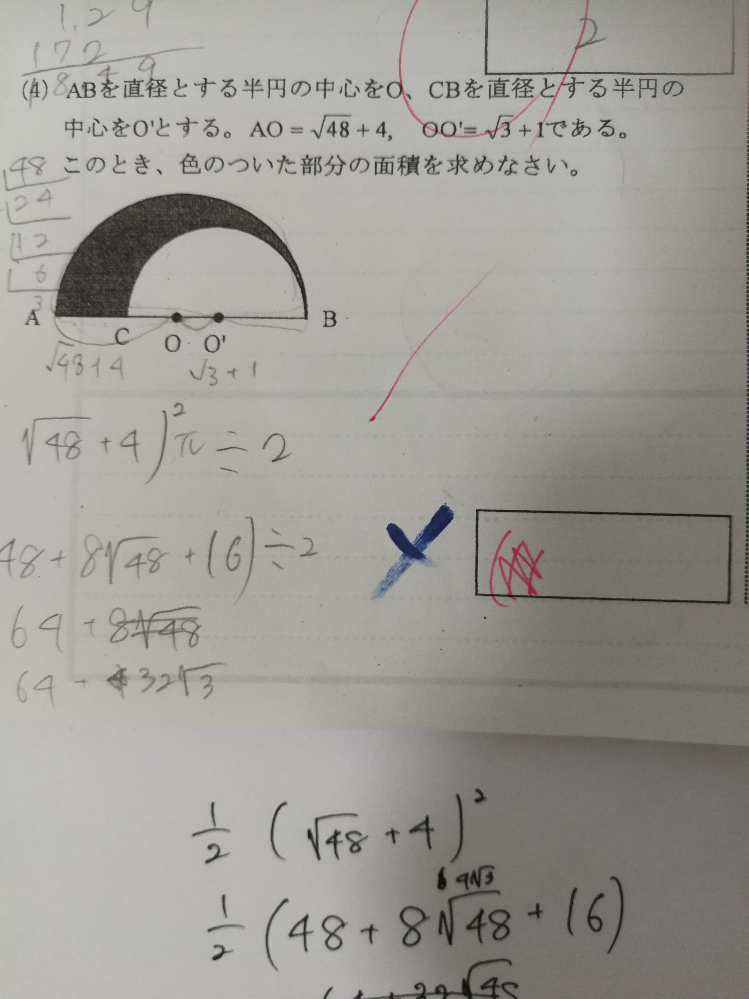 1.29
172
849
2
(4) ABを直径とする半円の中心をO、CBを直径とする半円の
中心をO'とする。 AO = √48 + 4, OO'= √3 + 1である。
このとき、色のついた部分の面積を求めなさい。
48
24
12
6
3
A C O O' B
√48 + 4 √3 + 1
√48 + 4)² π ÷ 2
48 + 8√48 + 16) ÷ 2
64 + 8√48
64 + 32√3
1/2 (√48 + 4)²
4√3
1/2 (48 + 8√48 + 16)